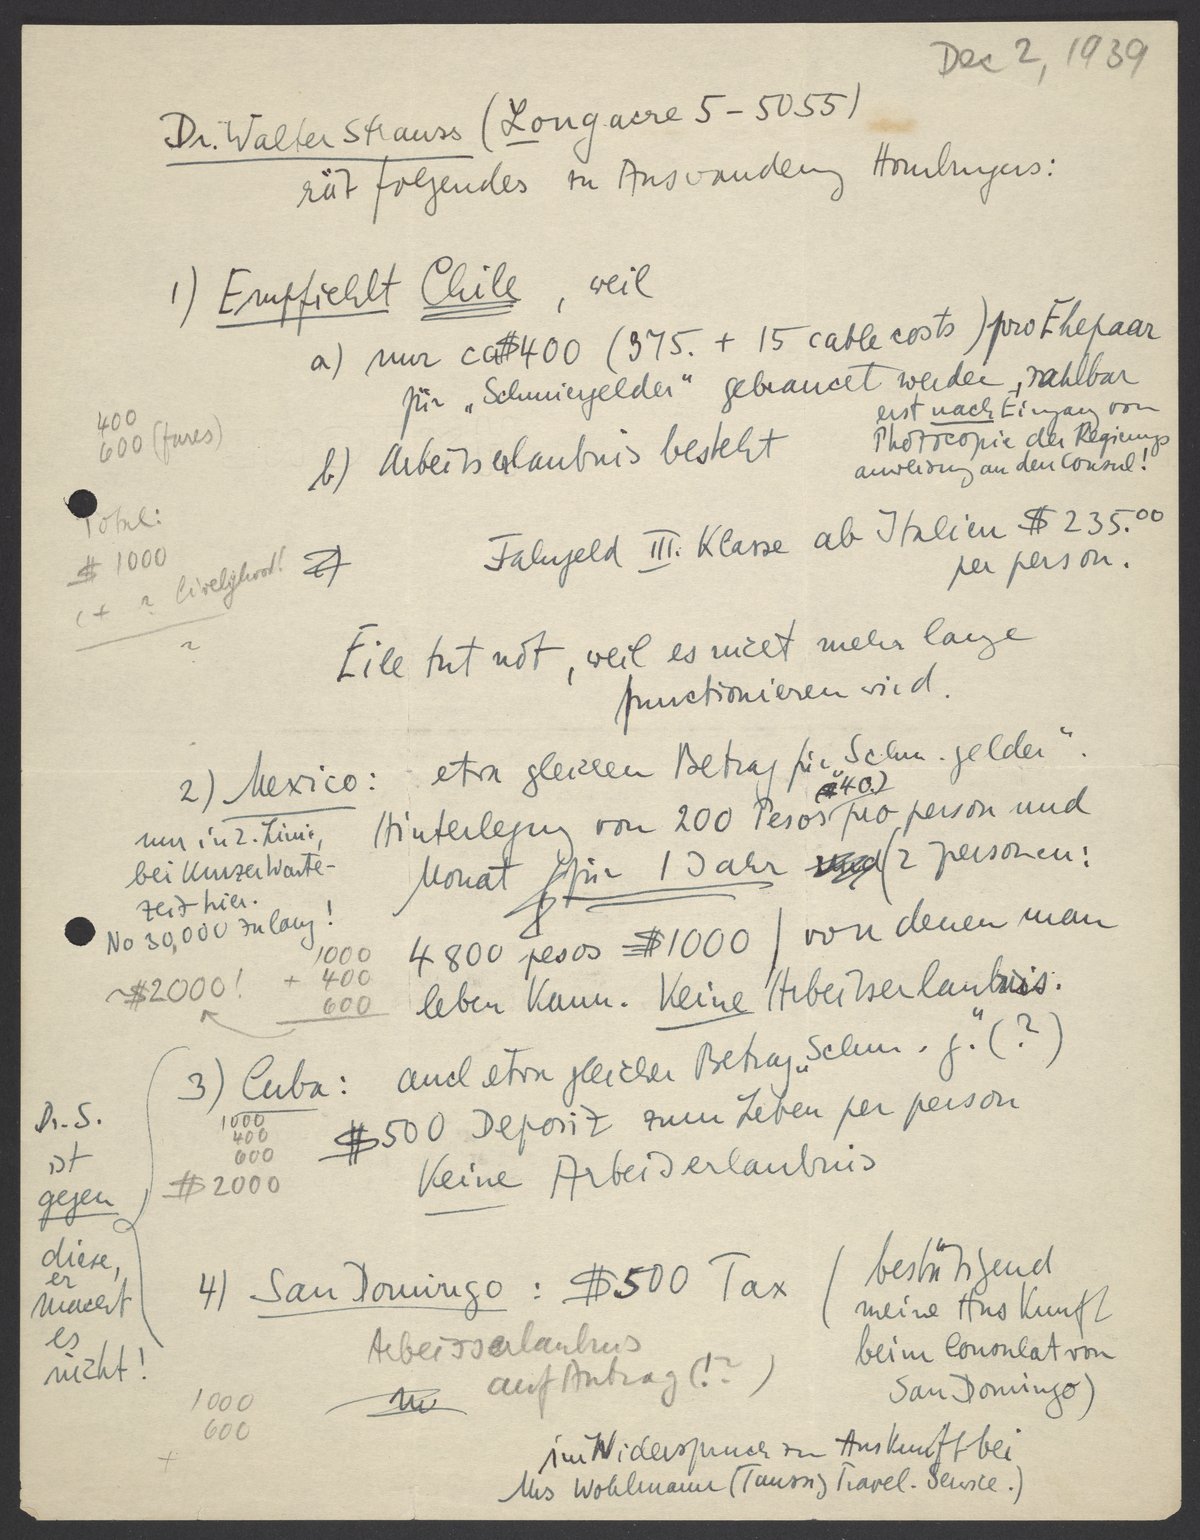 Dec 2, 1939
Dr. Walter Strauss (Longacre 5-5055)
rät folgendes zu Auswanderung Homburgers:
1) Empfiehlt Chile, weil
a) nur ca $400 (375. + 15 cable costs) pro Ehepaar
für „Schmiergelder“ gebraucht werden, zahlbar
erst nach Eingang von
Photocopie der Regierungs
anweisung an den Consul!
b) Arbeitserlaubnis besteht
400
600 (fares)
Total:
$ 1000
(+ ? livelyhood!
?
2)
Fahrgeld III. Klasse ab Italien $ 235.00
per person.
Eile tut not, weil es nicht mehr lange
functionieren wird.
2) Mexico: etwa gleichen Betrag für „Schm.gelder“.
($40.)
Hinterlegung von 200 Pesos pro person und
Monat für 1 Jahr und (2 personen:
4800 pesos = $1000) von denen man
leben kann. Keine Arbeitserlaubnis.
nur in 2. Linie,
bei kurzer Warte-
zeit hier.
No 30,000 zu lang!
1000
+ 400
600
~$2000!
3) Cuba: auch etwa gleicher Betrag „Schm. g.“ (?)
$500 Deposit zum Leben per person
Keine Arbeitserlaubnis
1000
400
600
$ 2000
Dr. S.
ist
gegen
diese,
er
macht
es
nicht!
4) San Domingo: $500 Tax (bestätigend
meine Auskunft
beim Consulat von
San Domingo)
Arbeitserlaubnis
auf Antrag (!?)
1000
600
+
im Widerspruch zu Auskunft bei
Mrs Wohlmann (Taussig Travel-Service.)